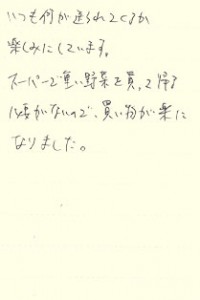 いつも何が送られてくるか
楽しみにしています。
スーパーで重い野菜を買って帰る
必要がないので、買い物が楽に
なりました。